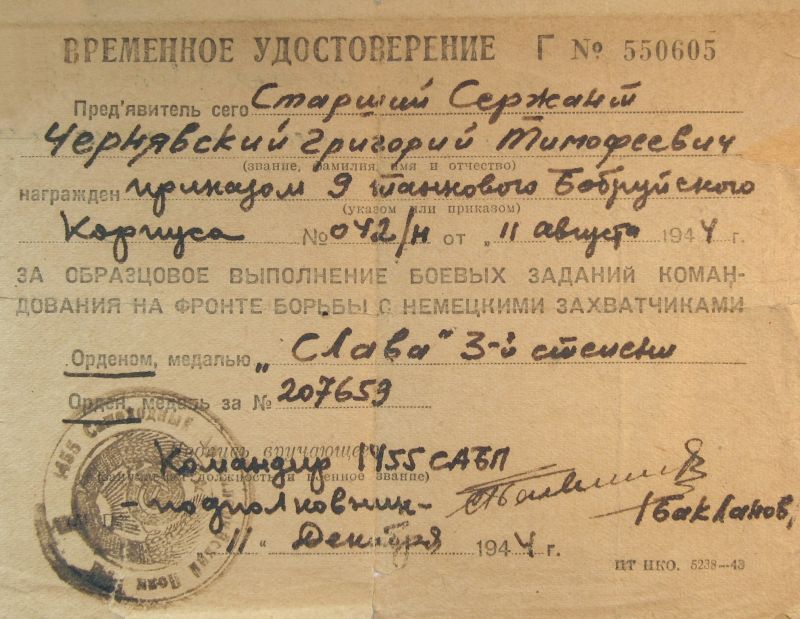 ВРЕМЕННОЕ УДОСТОВЕРЕНИЕ Г № 550605
Пред'явитель сего Старший Сержант
Чернявский Григорий Тимофеевич
(звание, фамилия, имя и отчество)
награжден приказом 9 танкового Бобруйского
(указом или приказом)
Корпуса № 042/н от „11 августа 1944 г.
ЗА ОБРАЗЦОВОЕ ВЫПОЛНЕНИЕ БОЕВЫХ ЗАДАНИЙ КОМАН-
ДОВАНИЯ НА ФРОНТЕ БОРЬБЫ С НЕМЕЦКИМИ ЗАХВАТЧИКАМИ
Орденом, медалью „Слава" 3-й степени
Орден, медаль за № 207659
1455 Самоходный
Подпись вручающего
Командир 1455 САБП
(наименов. должности и военное звание)
-подполковник-
/Бакланов/
„11" Декабря 1944 г.
ПТ НКО. 5238—43